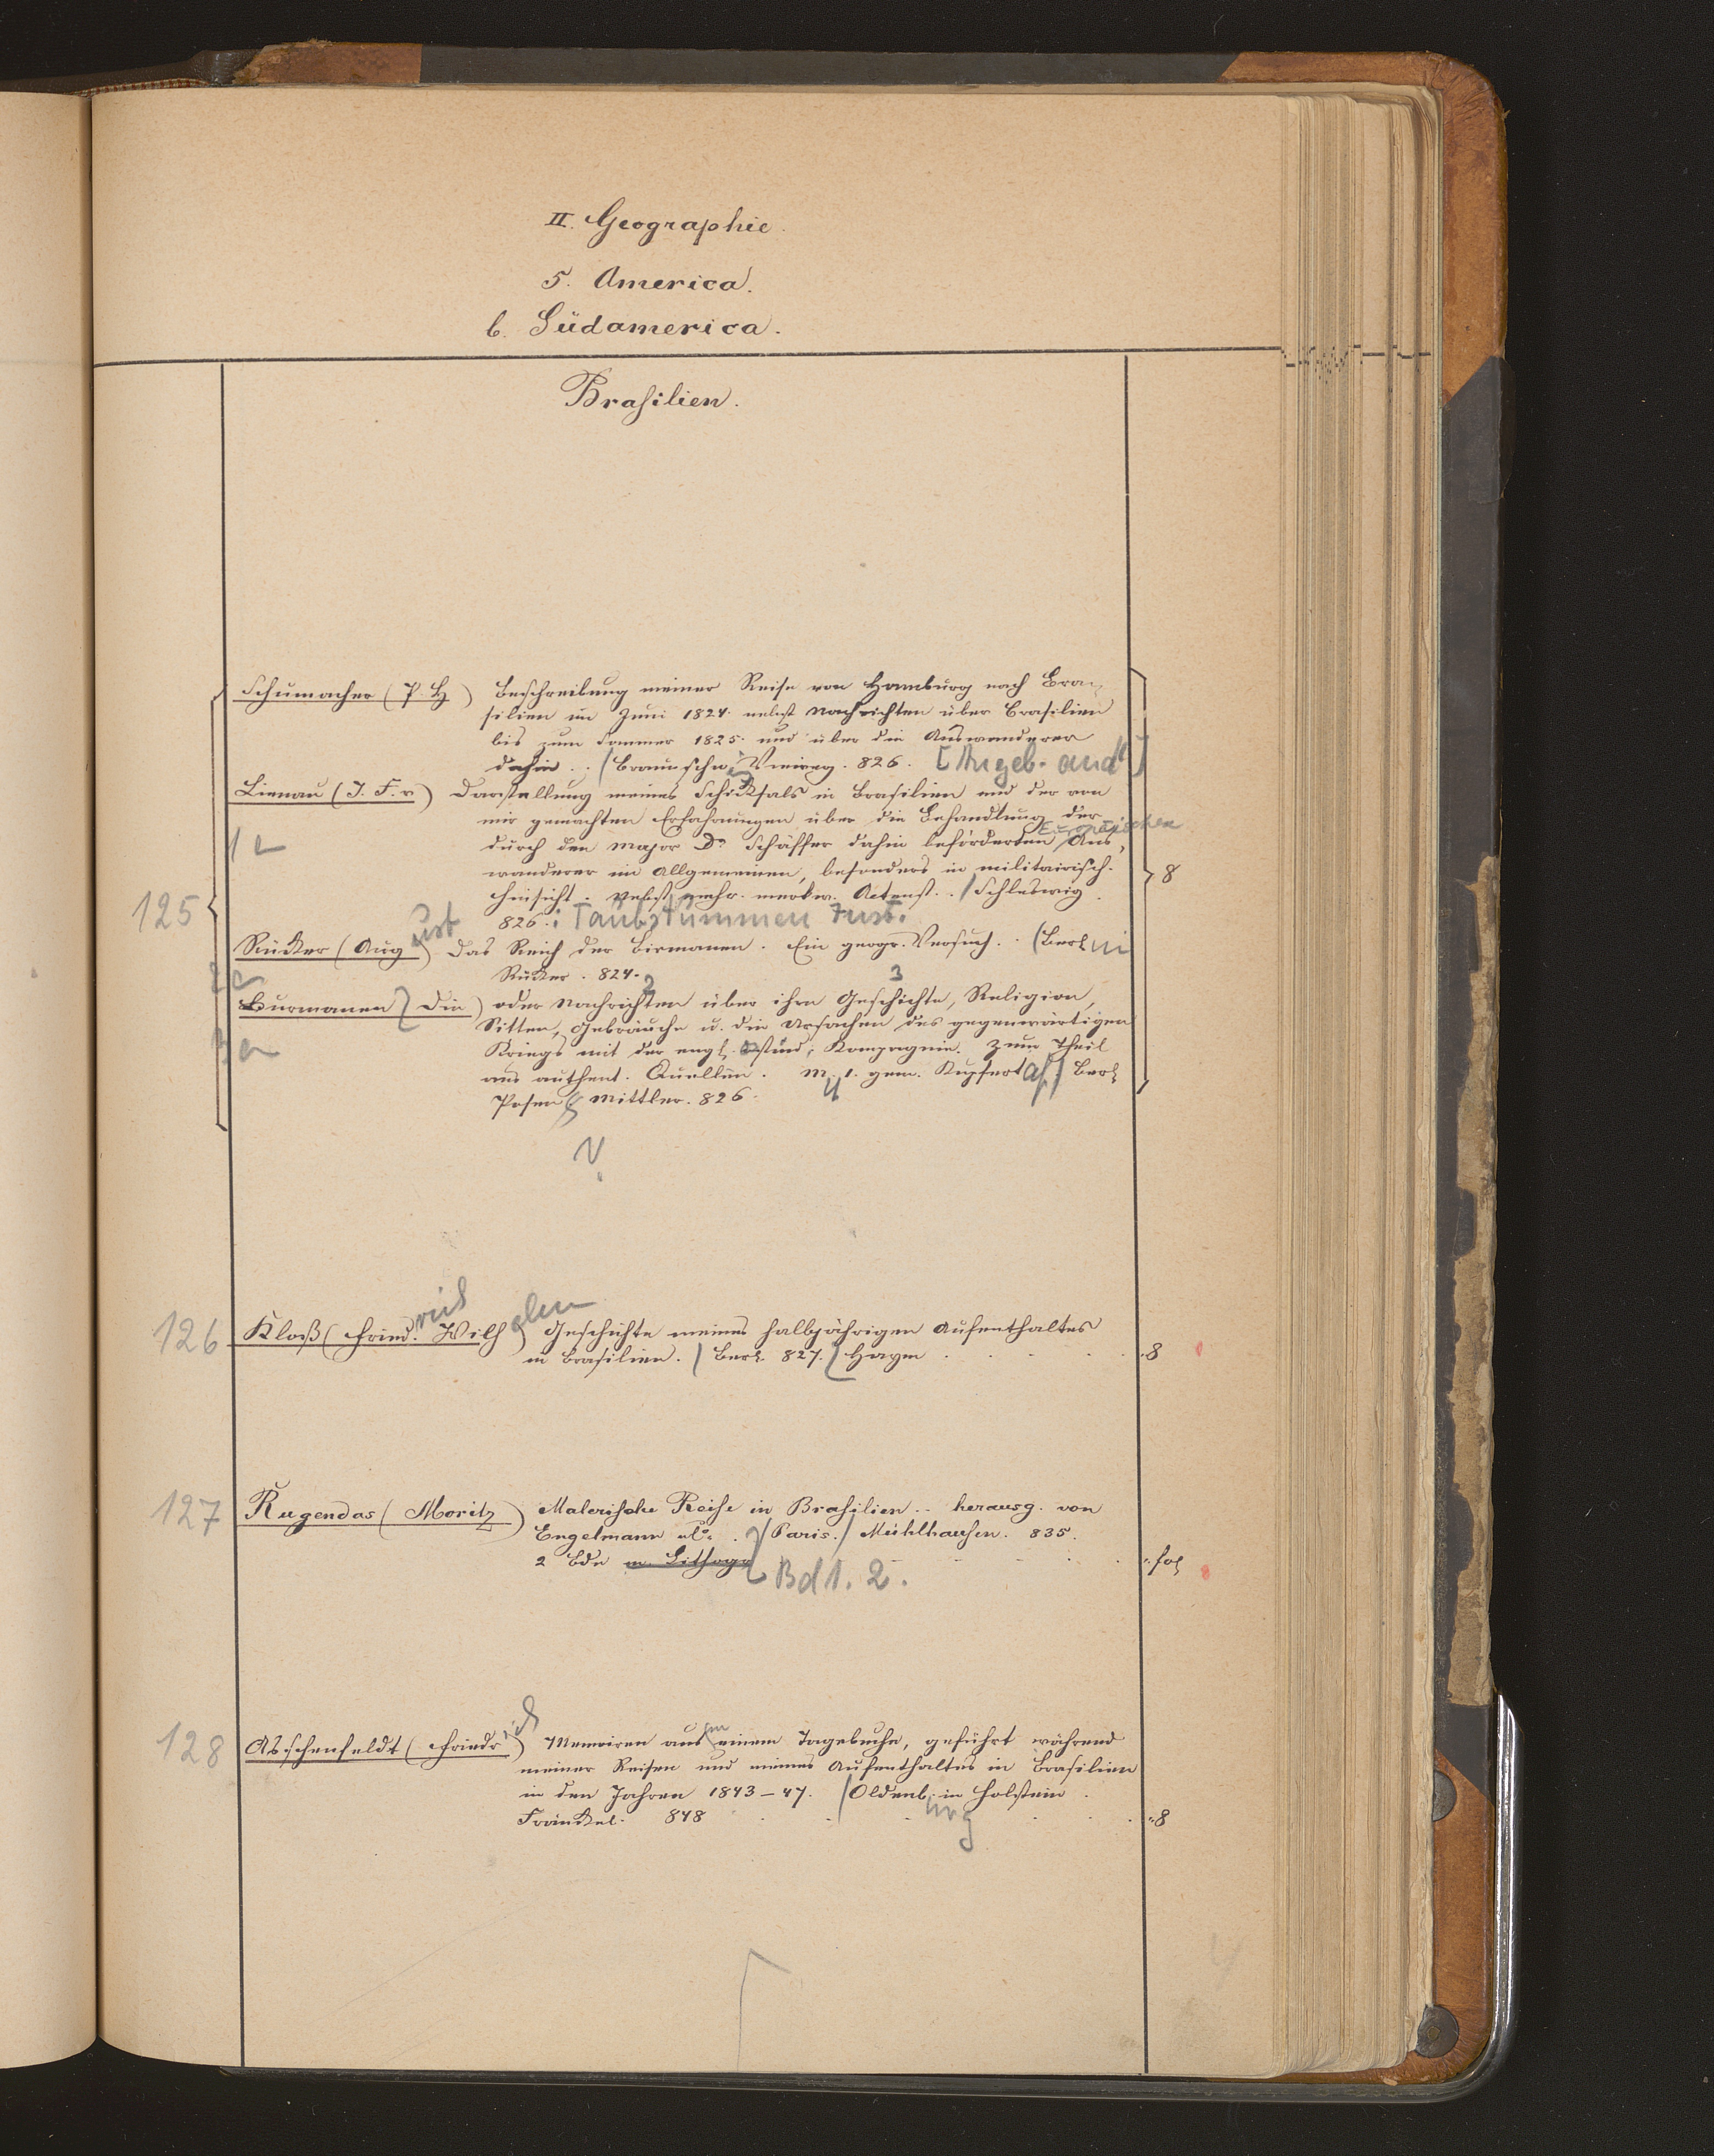 II. Geographie.
5. America.
b. Südamerica.
Brasilien.
Schumacher (P. H) Beschreibung meiner Reise von Hamburg nach Bra-
silien im Juni 1824. nebst Nachrichten über Brasilien
bis zum Sommer 1825. und über die Auswanderer
dahin.. (Braunschw Vieweg. 826. [Angeb. and]
Lienau (J. F. v) Darstellung meines Schicksals in Brasilien und der von
mir gemachten Erfahrungen über die Behandlung der
durch den Major Dr. Schäffer dahin beförderten Europäischen Aus-
1
wanderer im Allgemeinen, besonders in militairisch.
8
Hinsicht. Nebst mehr. merkw. Actenst.. / Schleswig.
125
826. Taubstummen Inst.
Rücker (August) Das Reich der Birmanen. Ein geogr. Versuch.. (Berlin
Rücker. 824.
2
3
Burmanen Die) oder Nachrichten über ihre Geschichte, Religion,
Sitten, Gebräuche u. die Ursachen des gegenwärtigen
Kriegs mit der engl. ostind. Kompagnie. Zum Theil
aus authent. Quellen. M. 1. gem. Kupfertaf / Berl
Posen Mittler. 826.
126 Kloß (Friedrich Wilhelm) Geschichte meines halbjährigen Aufenthaltes
in Brasilien. / Berl. 827. / Hayn . . . . . 8
127 Rugendas (Moritz) Malerische Reise in Brasilien.. herausg. von
Engelmann & Co. / Paris. / Mühlhausen. 835.
2 Bde m. Lithogr Bd 1. 2. fol
128 Asschenfeldt (Friedrich) Memoiren aus meinem Tagebuche, geführt während
meiner Reisen und meines Aufenthaltes in Brasilien
in den Jahren 1843–47. / Oldenburg in Holstein.
Fränkel. 848 . . . . . 8